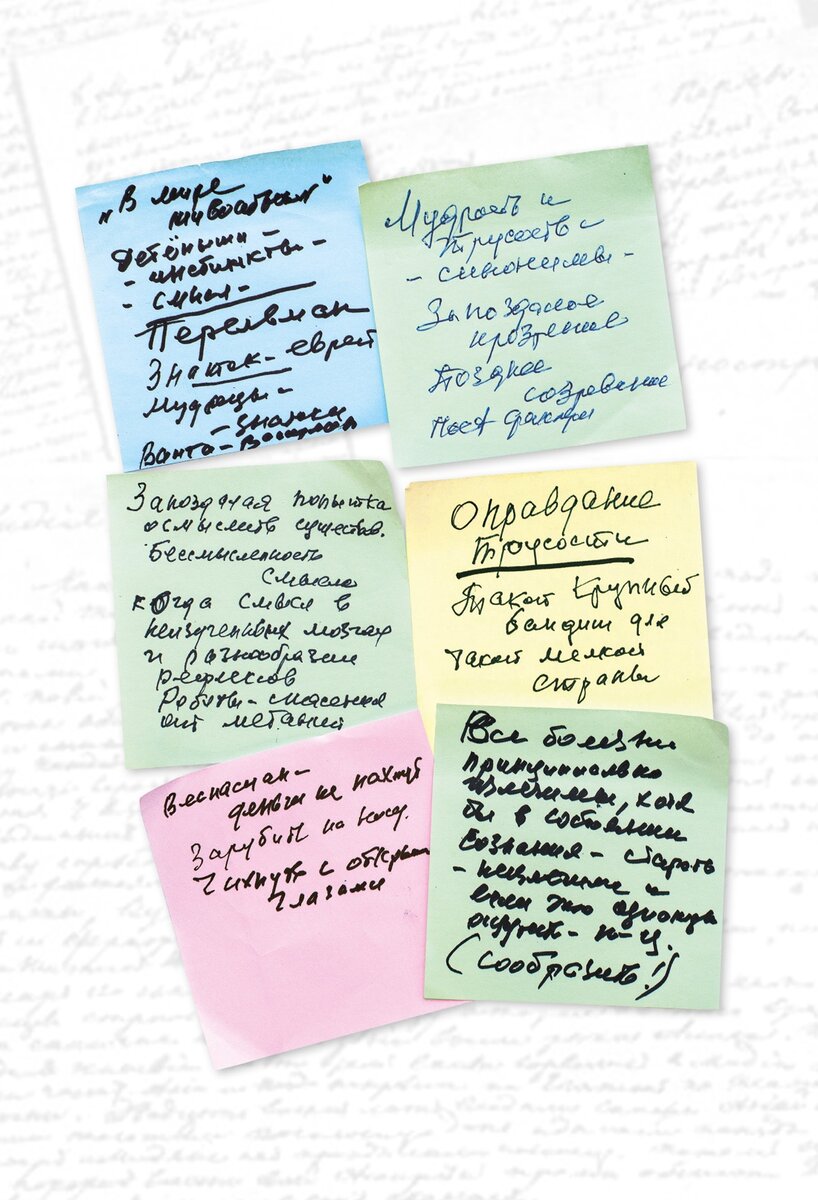 „В мире
животных"
Детёныши -
- инстинкты -
- смысл -
Перельман
Знаток - еврей
Мудрецы -
- знатоки
Ванга -
Мудрость и
трусость -
- синонимы -
Запоздалое
прозрение
Позднее
созревание
Пост фактум
Запоздалая попытка
осмыслить существов.
Бессмысленность
смысла
когда смысл в
неизученных мозгах
и разнообразии
рефлексов
Роботы - спасение
от метаний
Оправдание
трусости
Такой крупный
бандит для
такой мелкой
страны
Веспасиан -
деньги не пахнут
Зарубить на носу.
Чихнуть с открытыми
глазами
Все болезни
принципиально
излечимы, хотя
бы в состоянии
сознания - старость
- неизлечима и
если это однажды
ощутить - п-ц.
(сообразить!)